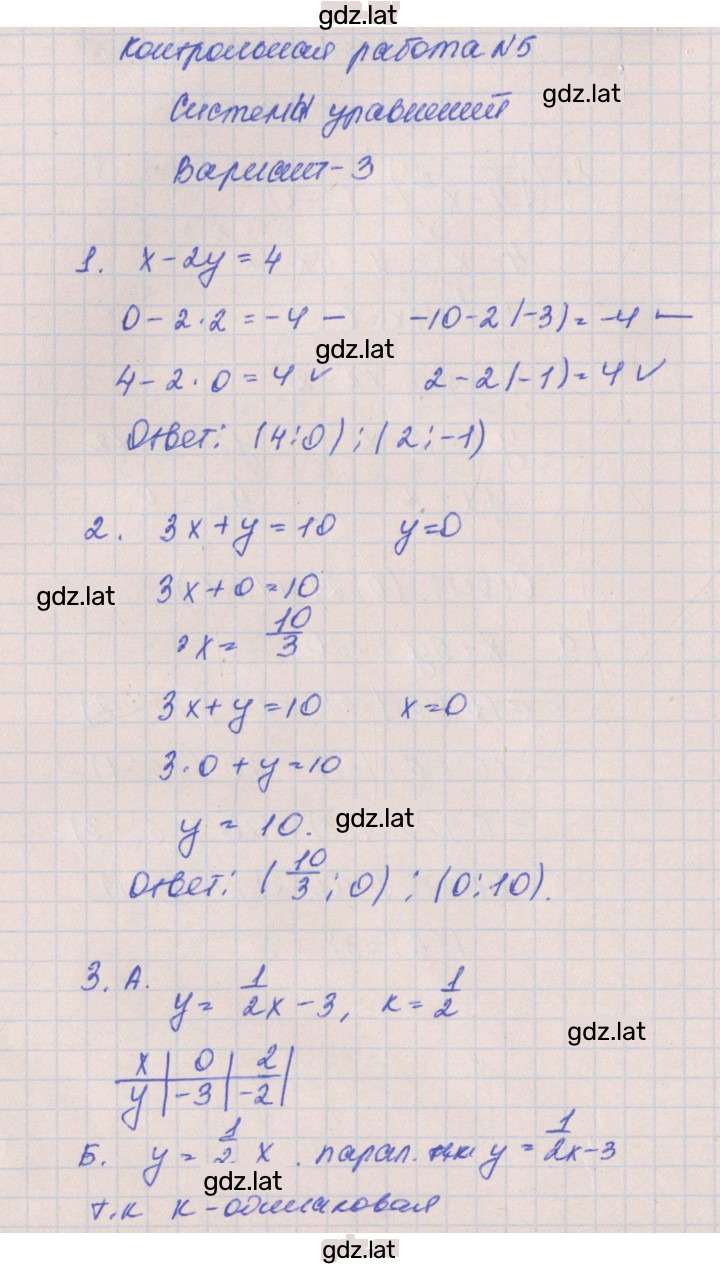 gdz.lat
Контрольная работа №5
gdz.lat
Системы уравнений
Вариант-3
1. x-2y=4
0-2·2=-4 — -10-2(-3)=-4 —
gdz.lat
4-2·0=4 ✓ 2-2(-1)=4 ✓
Ответ: (4;0); (2;-1)
2. 3x+y=10 y=0
gdz.lat
3x+0=10
x= 10/3
3x+y=10 x=0
3·0+y=10
y=10. gdz.lat
Ответ: (10/3;0); (0;10).
3. А.
y= 1/2x-3, к=1/2
gdz.lat
x | 0 | 2 |
y | -3 | -2 |
Б. y=1/2 x . парал. y=1/2x-3
gdz.lat
т.к к-одинаковая
gdz.lat